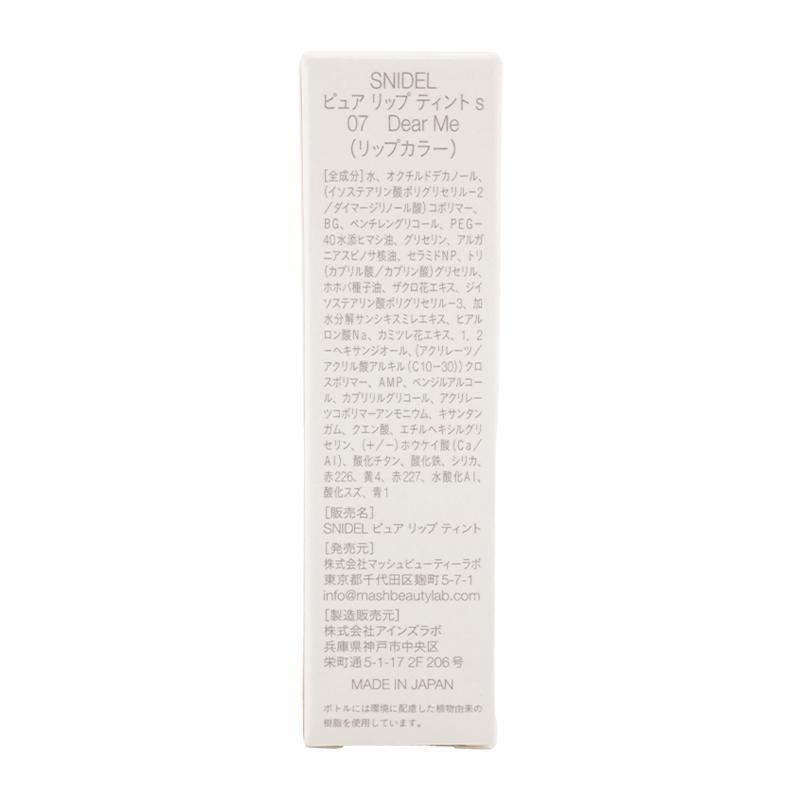 SNIDEL
ピュア リップ ティント s
07 Dear Me
(リップカラー)
[全成分]水、オクチルドデカノール、
(イソステアリン酸ポリグリセリル-2
/ダイマージリノール酸)コポリマー、
BG、ペンチレングリコール、PEG-
40水添ヒマシ油、グリセリン、アルガ
ニアスピノサ核油、セラミドNP、トリ
(カプリル酸/カプリン酸)グリセリル、
ホホバ種子油、ザクロ花エキス、ジイ
ソステアリン酸ポリグリセリル-3、加
水分解サンシキスミレエキス、ヒアル
ロン酸Na、カミツレ花エキス、1, 2
-ヘキサンジオール、(アクリレーツ/
アクリル酸アルキル(C10-30))クロ
スポリマー、AMP、ベンジルアルコー
ル、カプリリルグリコール、アクリレー
ツコポリマーアンモニウム、キサンタン
ガム、クエン酸、エチルヘキシルグリ
セリン、(+/-)ホウケイ酸(Ca/
Al)、酸化チタン、酸化鉄、シリカ、
赤226、黄4、赤227、水酸化Al、
酸化スズ、青1
[販売名]
SNIDEL ピュア リップ ティント
[発売元]
株式会社マッシュビューティーラボ
東京都千代田区麹町5-7-1
info@mashbeautylab.com
[製造販売元]
株式会社アインズラボ
兵庫県神戸市中央区
栄町通5-1-17 2F 206号
MADE IN JAPAN
ボトルには環境に配慮した植物由来の
樹脂を使用しています。